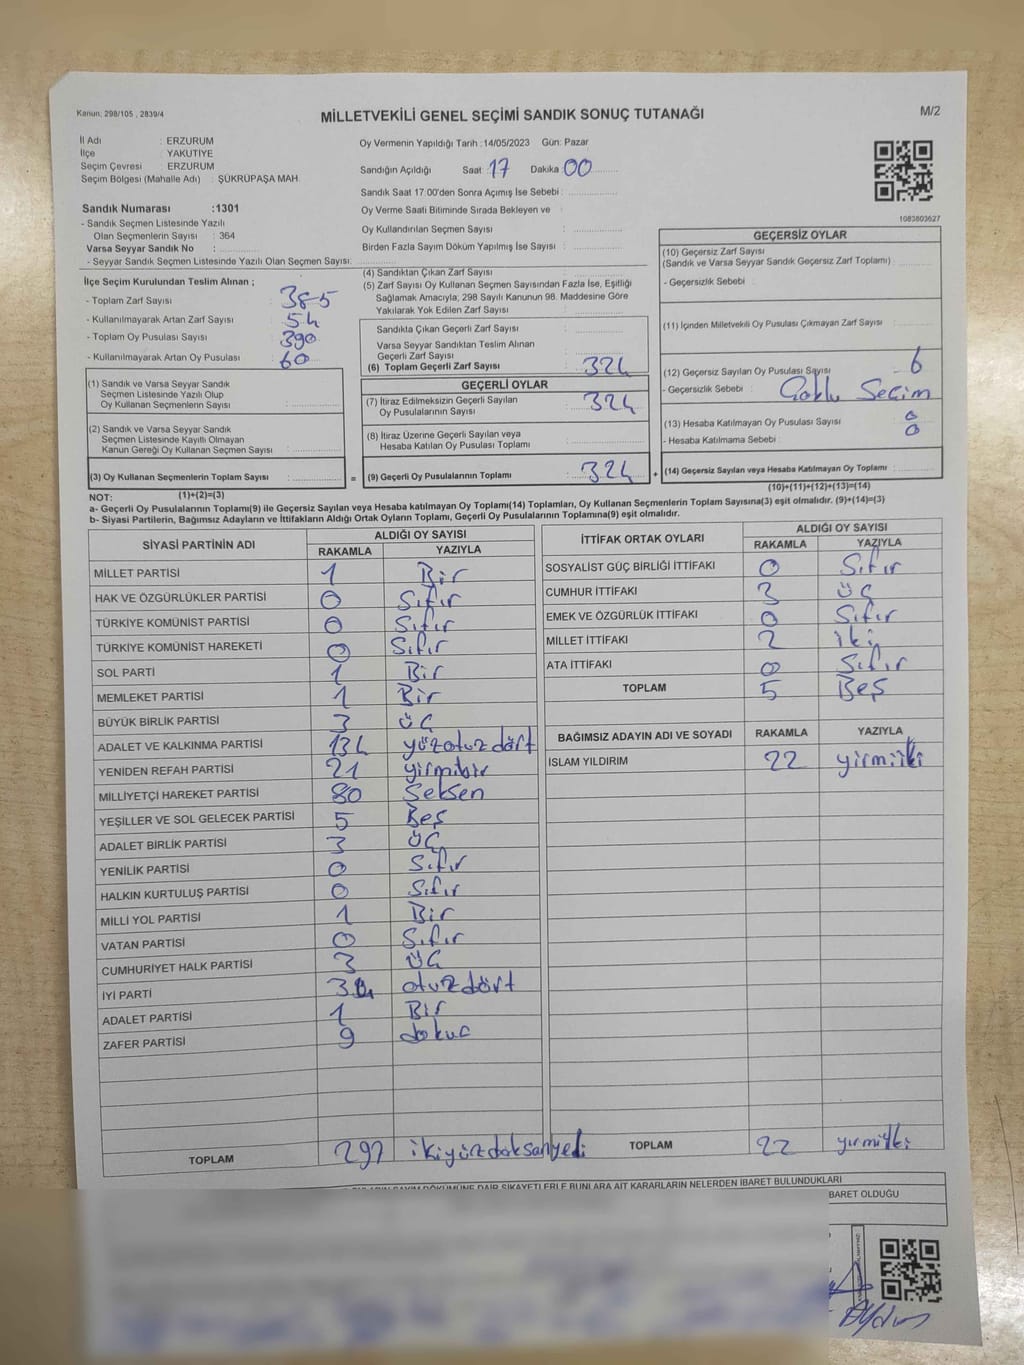 Kanun: 298/105 , 2839/4
MİLLETVEKİLİ GENEL SEÇİMİ SANDIK SONUÇ TUTANAĞI
M/2
İl Adı : ERZURUM
İlçe : YAKUTİYE
Seçim Çevresi : ERZURUM
Seçim Bölgesi (Mahalle Adı) : ŞÜKRÜPAŞA MAH.
Sandık Numarası :1301
- Sandık Seçmen Listesinde Yazılı
Olan Seçmenlerin Sayısı : 364
Varsa Seyyar Sandık No :
- Seyyar Sandık Seçmen Listesinde Yazılı Olan Seçmen Sayısı:
Oy Vermenin Yapıldığı Tarih : 14/05/2023 Gün: Pazar
Sandığın Açıldığı Saat : 17 Dakika 00
Sandık Saat 17.00'den Sonra Açımış İse Sebebi :
Oy Verme Saati Bitiminde Sırada Bekleyen ve :
Oy Kullandırılan Seçmen Sayısı :
Birden Fazla Sayım Döküm Yapılmış İse Sayısı :
1083803627
İlçe Seçim Kurulundan Teslim Alınan ;
- Toplam Zarf Sayısı : 385
- Kullanılmayarak Artan Zarf Sayısı : 54
- Toplam Oy Pusulası Sayısı : 390
- Kullanılmayarak Artan Oy Pusulası : 60
(1) Sandık ve Varsa Seyyar Sandık
Seçmen Listesinde Yazılı Olup
Oy Kullanan Seçmenlerin Sayısı :
(2) Sandık ve Varsa Seyyar Sandık
Seçmen Listesinde Kayıllı Olmayan
Kanun Gereği Oy Kullanan Seçmen Sayısı :
(3) Oy Kullanan Seçmenlerin Toplam Sayısı :
(1)+(2)=(3)
(4) Sandıktan Çıkan Zarf Sayısı :
(5) Zarf Sayısı Oy Kullanan Seçmen Sayısından Fazla İse, Eşitliği
Sağlamak Amacıyla; 298 Sayılı Kanunun 98. Maddesine Göre
Yakılarak Yok Edilen Zarf Sayısı :
Sandıkta Çıkan Geçerli Zarf Sayısı :
Varsa Seyyar Sandıktan Teslim Alınan
Geçerli Zarf Sayısı :
(6) Toplam Geçerli Zarf Sayısı : 324
GEÇERLİ OYLAR
(7) İtiraz Edilmeksizin Geçerli Sayılan
Oy Pusulalarının Sayısı : 324
(8) İtiraz Üzerine Geçerli Sayılan veya
Hesaba Katılan Oy Pusulası Toplamı :
= (9) Geçerli Oy Pusulalarının Toplamı : 324 +
GEÇERSİZ OYLAR
(10) Geçersiz Zarf Sayısı
(Sandık ve Varsa Seyyar Sandık Geçersiz Zarf Toplamı) :
- Geçersizlik Sebebi :
(11) İçinden Milletvekili Oy Pusulası Çıkmayan Zarf Sayısı :
(12) Geçersiz Sayılan Oy Pusulası Sayısı : 6
- Geçersizlik Sebebi : Çoklu Seçim
(13) Hesaba Katılmayan Oy Pusulası Sayısı : 0
- Hesaba Katılmama Sebebi : 0
(14) Geçersiz Sayılan veya Hesaba Katılmayan Oy Toplamı :
(10)+(11)+(12)+(13)=(14)
NOT:
a- Geçerli Oy Pusulalarının Toplamı(9) ile Geçersiz Sayılan veya Hesaba Katılmayan Oy Toplamı(14) Toplamları, Oy Kullanan Seçmenlerin Toplam Sayısına(3) eşit olmalıdır. (9)+(14)=(3)
b- Siyasi Partilerin, Bağımsız Adayların ve İttifakların Aldığı Ortak Oyların Toplamı, Geçerli Oy Pusulalarının Toplamına(9) eşit olmalıdır.
SİYASİ PARTİNİN ADI ALDIĞI OY SAYISI
RAKAMLA YAZIYLA
MİLLET PARTİSİ 1 Bir
HAK VE ÖZGÜRLÜKLER PARTİSİ 0 Sıfır
TÜRKİYE KOMÜNİST PARTİSİ 0 Sıfır
TÜRKİYE KOMÜNİST HAREKETİ 0 Sıfır
SOL PARTİ 1 Bir
MEMLEKET PARTİSİ 1 Bir
BÜYÜK BİRLİK PARTİSİ 3 üç
ADALET VE KALKINMA PARTİSİ 134 yüzotuzdört
YENİDEN REFAH PARTİSİ 21 yirmibir
MİLLİYETÇİ HAREKET PARTİSİ 80 Seksen
YEŞİLLER VE SOL GELECEK PARTİSİ 5 Beş
ADALET BİRLİK PARTİSİ 3 üç
YENİLİK PARTİSİ 0 Sıfır
HALKIN KURTULUŞ PARTİSİ 0 Sıfır
MİLLİ YOL PARTİSİ 1 Bir
VATAN PARTİSİ 0 Sıfır
CUMHURİYET HALK PARTİSİ 3 üç
İYİ PARTİ 34 otuzdört
ADALET PARTİSİ 1 Bir
ZAFER PARTİSİ 9 dokuz
TOPLAM 297 ikiyüzdoksanyedi
İTTİFAK ORTAK OYLARI ALDIĞI OY SAYISI
RAKAMLA YAZIYLA
SOSYALİST GÜÇ BİRLİĞİ İTTİFAKI 0 Sıfır
CUMHUR İTTİFAKI 3 üç
EMEK VE ÖZGÜRLÜK İTTİFAKI 0 Sıfır
MİLLET İTTİFAKI 2 iki
ATA İTTİFAKI 0 Sıfır
TOPLAM 5 Beş
BAĞIMSIZ ADAYIN ADI VE SOYADI RAKAMLA YAZIYLA
İSLAM YILDIRIM 22 yirmiiki
TOPLAM 22 yirmiiki
SAYIM DÖKÜMÜNE DAİR ŞİKAYETLERLE BUNLARA AİT KARARLARIN NELERDEN İBARET BULUNDUKLARI
BARET OLDUĞU